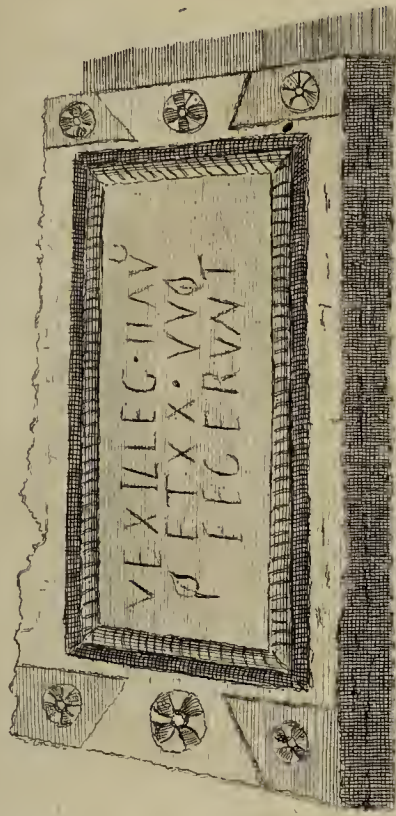 VEXILLEG·IIAVͶ
ET XX·VV
FECERVNT